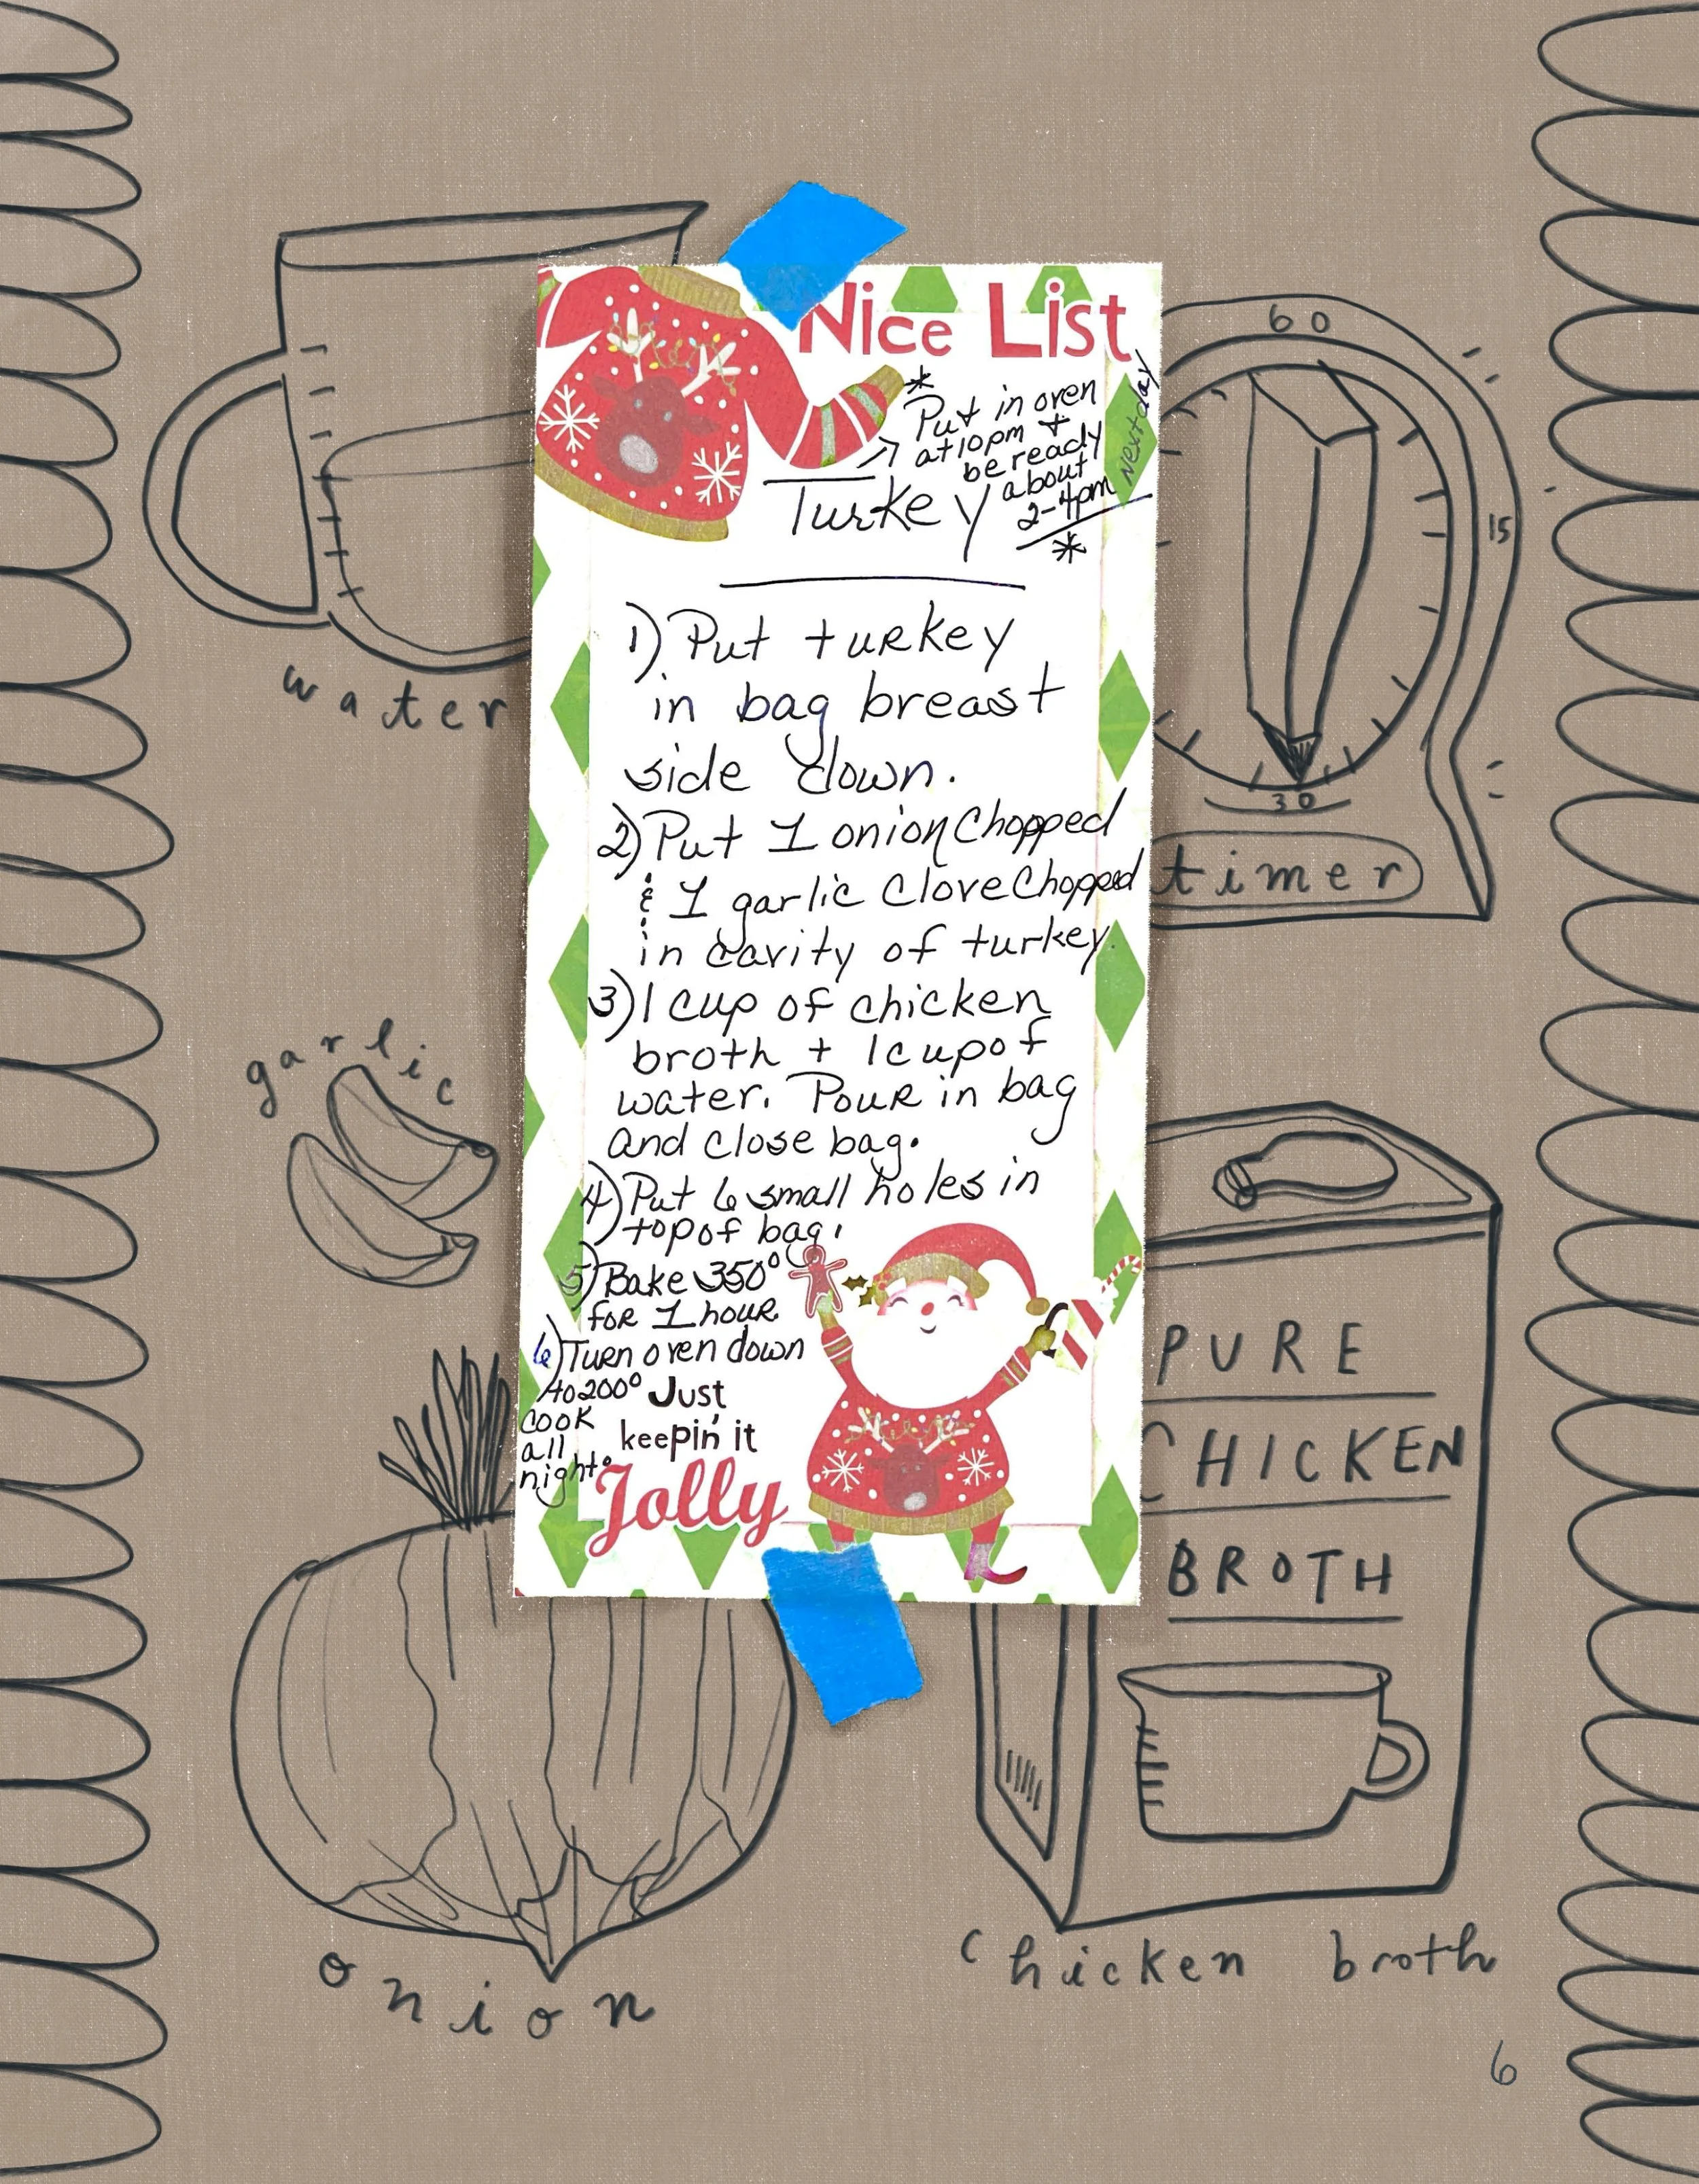 Nice List
*
Put in oven
at 10pm +
be ready
about
2-4pm
next day
*
Turkey
1) Put turkey
in bag breast
side down.
2) Put 1 onion chopped
& 1 garlic clove chopped
in cavity of turkey.
3) 1 cup of chicken
broth + 1 cup of
water. Pour in bag
and close bag.
4) Put 6 small holes in
top of bag.
5) Bake 350°
for 1 hour
6) Turn oven down
to 200°
cook
all
night.
Just
keepin' it
Jolly
water
60
15
30
timer
garlic
PURE
CHICKEN
BROTH
onion
chicken broth
6